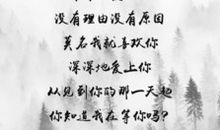 没有理由没有原因
莫名我就喜欢你
深深地爱上你
从见到你的那一天起
你知道我在等你吗?